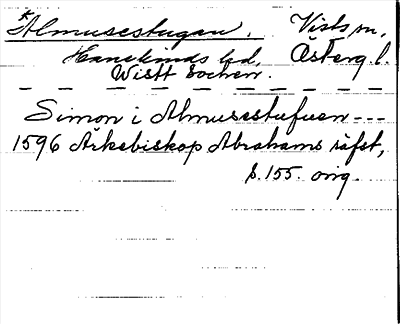 *Almusestugan. Vists sn,
Hanekinds hd, Österg. l.
Wistt Sochen.
Simon i Almusestufuen ---
1596 Ärkebiskop Abrahams räfst,
s. 155. orig.